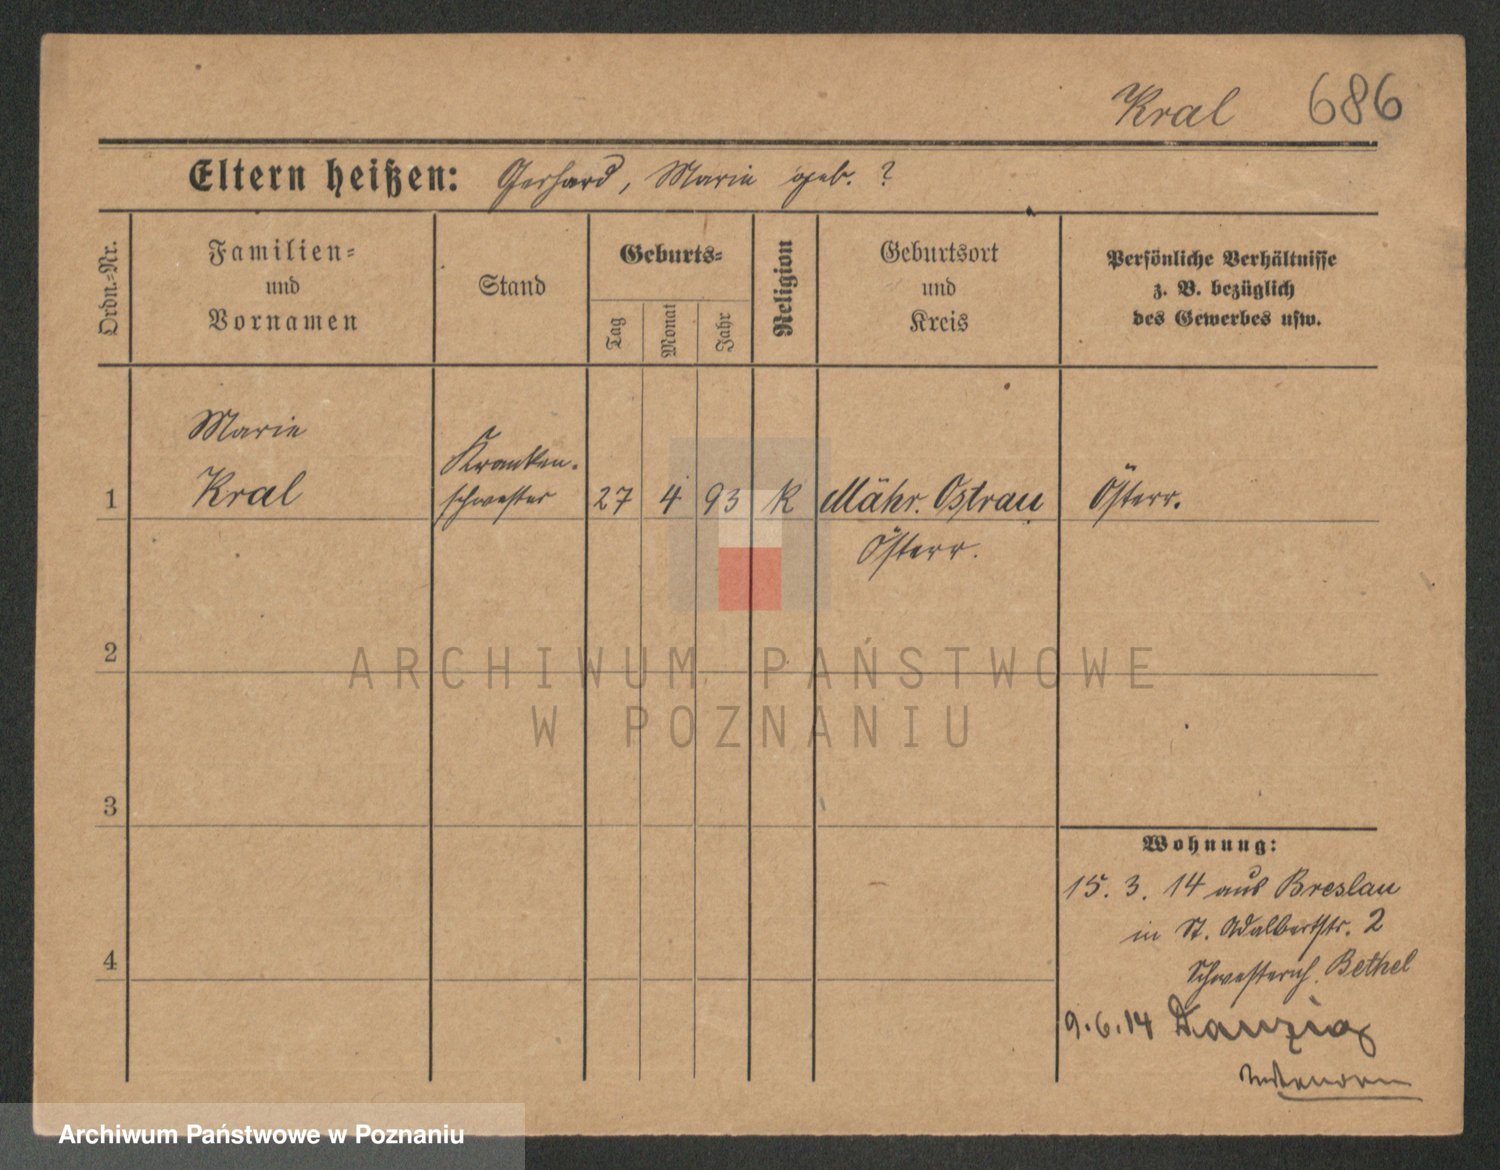 Kral 686
Eltern heißen: Gerhard, Marie geb. ?
Ordn.=Nr.
Familien=
und
Vornamen
Stand
Geburts=
Tag
Monat
Jahr
Religion
Geburtsort
und
Kreis
Persönliche Verhältnisse
z. B. bezüglich
des Gewerbes usw.
Marie
Kranken-
1 Kral schwester 27 4 93 k Mähr. Ostrau Österr.
Österr.
2
ARCHIWUM PAŃSTWOWE
W POZNANIU
3
Wohnung:
15. 3. 14 aus Breslau
in St. Adalbertstr. 2
Bethel
4
9.6.14 Danzig
Archiwum Państwowe w Poznaniu